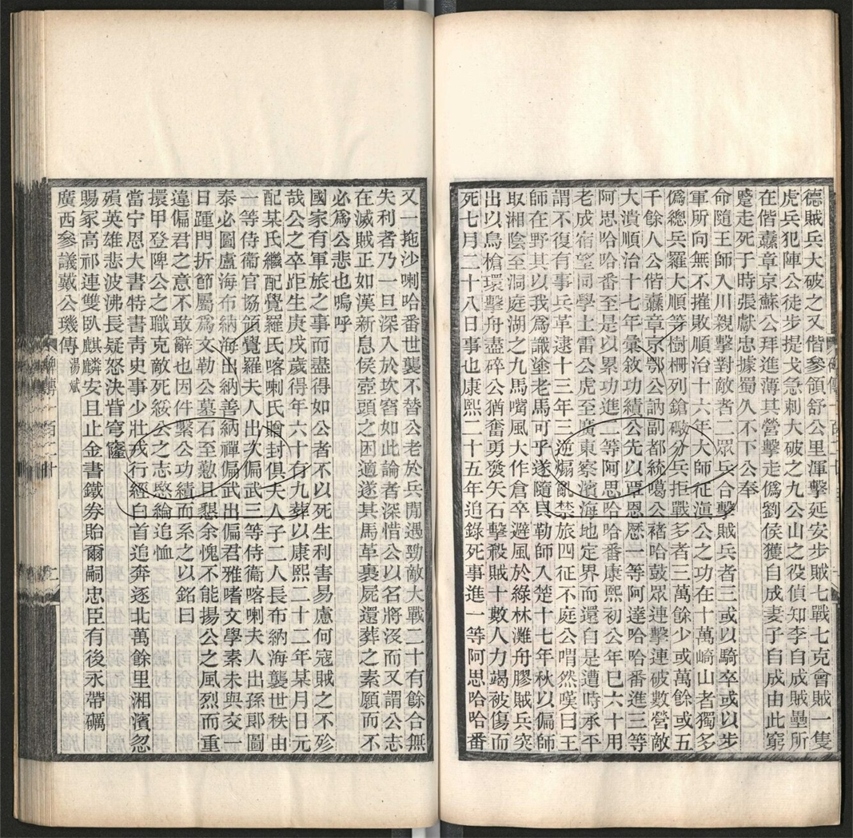 德賊兵大破之又偕參領舒公里渾擊延安步賊七戰七克會賊一隻
虎兵犯陣公徒步提戈急刺大破之九公山之役偵知李自成賊壘所
在偕纛章京蘇公拜進薄其營擊走僞劉侯獲自成妻子自成由此窮
蹙走死于時張獻忠據蜀久不下公奉
命隨王師入川親擊對敵者二眾兵合擊賊兵者三或以騎卒或以步
軍所向無不摧敗順治十六年大師征滇公之功在十萬崎山者獨多
僞總兵羅大順等樹柵列鎗礮分兵拒戰多者三萬餘少或萬餘或五
千餘人公偕纛章京鄂公訥副都統噶公褚哈鼓眾連擊連破數營敵
大潰順治十七年彙敘功績公先以覃恩歷一等阿達哈哈番進三等
阿思哈哈番至是以累功進二等阿思哈哈番康熙初公年巳六十用
老成宿望同學士雷公虎至廣東察濱海地定界而還自是遭時承平
謂不復有事兵革逮十三年三逆煽亂禁旅四征不庭公喟然嘆曰王
師在野其以我爲識塗老馬可乎遂隨貝勒師入楚十七年秋以偏師
取湘陰至洞庭湖之九馬嘴風大作倉卒避風於綠林灘舟膠賊兵突
出以鳥槍環擊舟盡碎公猶奮勇發矢石擊殺賊十數人力竭被傷而
死七月二十八日事也康熙二十五年追錄死事進一等阿思哈哈番
又一拖沙喇哈番世襲不替公老於兵間遇勁敵大戰二十有餘合無
失利者乃一旦深入於坎窞如此論者深惜公以名將沒而又謂公志
在滅賊正如漢新息侯壺頭之困適遂其馬革裹屍還葬之素願而不
必爲公悲也嗚呼
國家有軍旅之事而盡得如公者不以死生利害易慮何寇賊之不殄
哉公之卒距生庚戌歲得年六十有九葬以康熙二十二年某月日元
配某氏繼配覺羅氏喀喇氏贈封俱夫人子二人長布納海襲世秩由
一等侍衛官協領覺羅夫人出次偏武三等侍衛喀喇夫人出孫郎圖
泰必圖盧海布納海出納善納禪偏武出偏君雅嗜文學素未與交一
日踵門折節屬爲文勒公墓石至懃且懇余愧不能揚公之風烈而重
違偏君之意不敢辭也因件繫公功績而系之以銘曰
擐甲登陴公之職克敵死綏公之志愍綸追恤
當宁恩大書特書靑史事少壯戎行經白首追奔逐北萬餘里湘濱忽
殞英雄悲波沸長疑怒決眥穹窿
賜冢高祁連雙臥麒麟安且止金書鐵券貽爾嗣忠臣有後永帶礪
廣西參議戴公璣傳 湯斌